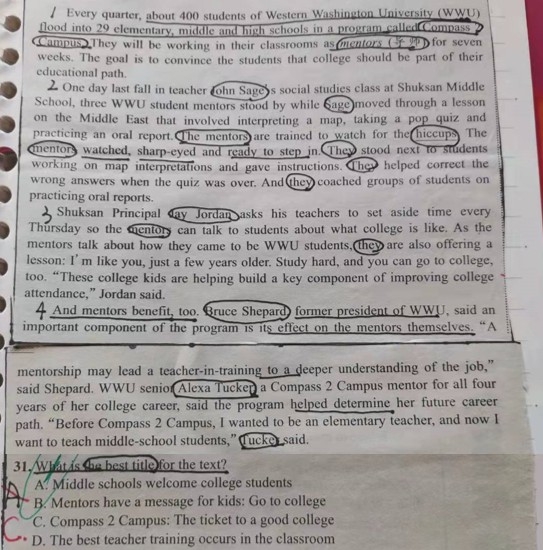 1 Every quarter, about 400 students of Western Washington University (WWU)
flood into 29 elementary, middle and high schools in a program called Compass 2
Campus. They will be working in their classrooms as mentors (导师) for seven
weeks. The goal is to convince the students that college should be part of their
educational path.
2 One day last fall in teacher John Sage's social studies class at Shuksan Middle
School, three WWU student mentors stood by while Sage moved through a lesson
on the Middle East that involved interpreting a map, taking a pop quiz and
practicing an oral report. The mentors are trained to watch for the hiccups. The
mentors watched, sharp-eyed and ready to step in. They stood next to students
working on map interpretations and gave instructions. They helped correct the
wrong answers when the quiz was over. And they coached groups of students on
practicing oral reports.
3 Shuksan Principal Jay Jordan asks his teachers to set aside time every
Thursday so the mentors can talk to students about what college is like. As the
mentors talk about how they came to be WWU students, they are also offering a
lesson: I'm like you, just a few years older. Study hard, and you can go to college,
too. “These college kids are helping build a key component of improving college
attendance,” Jordan said.
4 And mentors benefit, too. Bruce Shepard, former president of WWU, said an
important component of the program is its effect on the mentors themselves. “A
mentorship may lead a teacher-in-training to a deeper understanding of the job,”
said Shepard. WWU senior Alexa Tucker, a Compass 2 Campus mentor for all four
years of her college career, said the program helped determine her future career
path. “Before Compass 2 Campus, I wanted to be an elementary teacher, and now I
want to teach middle-school students,” Tucker said.
31. What is the best title for the text?
A. Middle schools welcome college students
A B. Mentors have a message for kids: Go to college
C. C. Compass 2 Campus: The ticket to a good college
D. The best teacher training occurs in the classroom